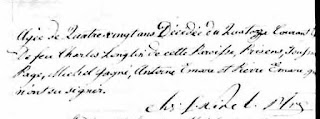 Agée de Quatre-vingt ans Décédée du Quatorze Courant
de feu Charles Langlois de cette Paroisse, Présens, Joseph
Pagé, Michel Gagné, Antoine Emare et Pierre Emare qui
n'ont su signer.
Ptre